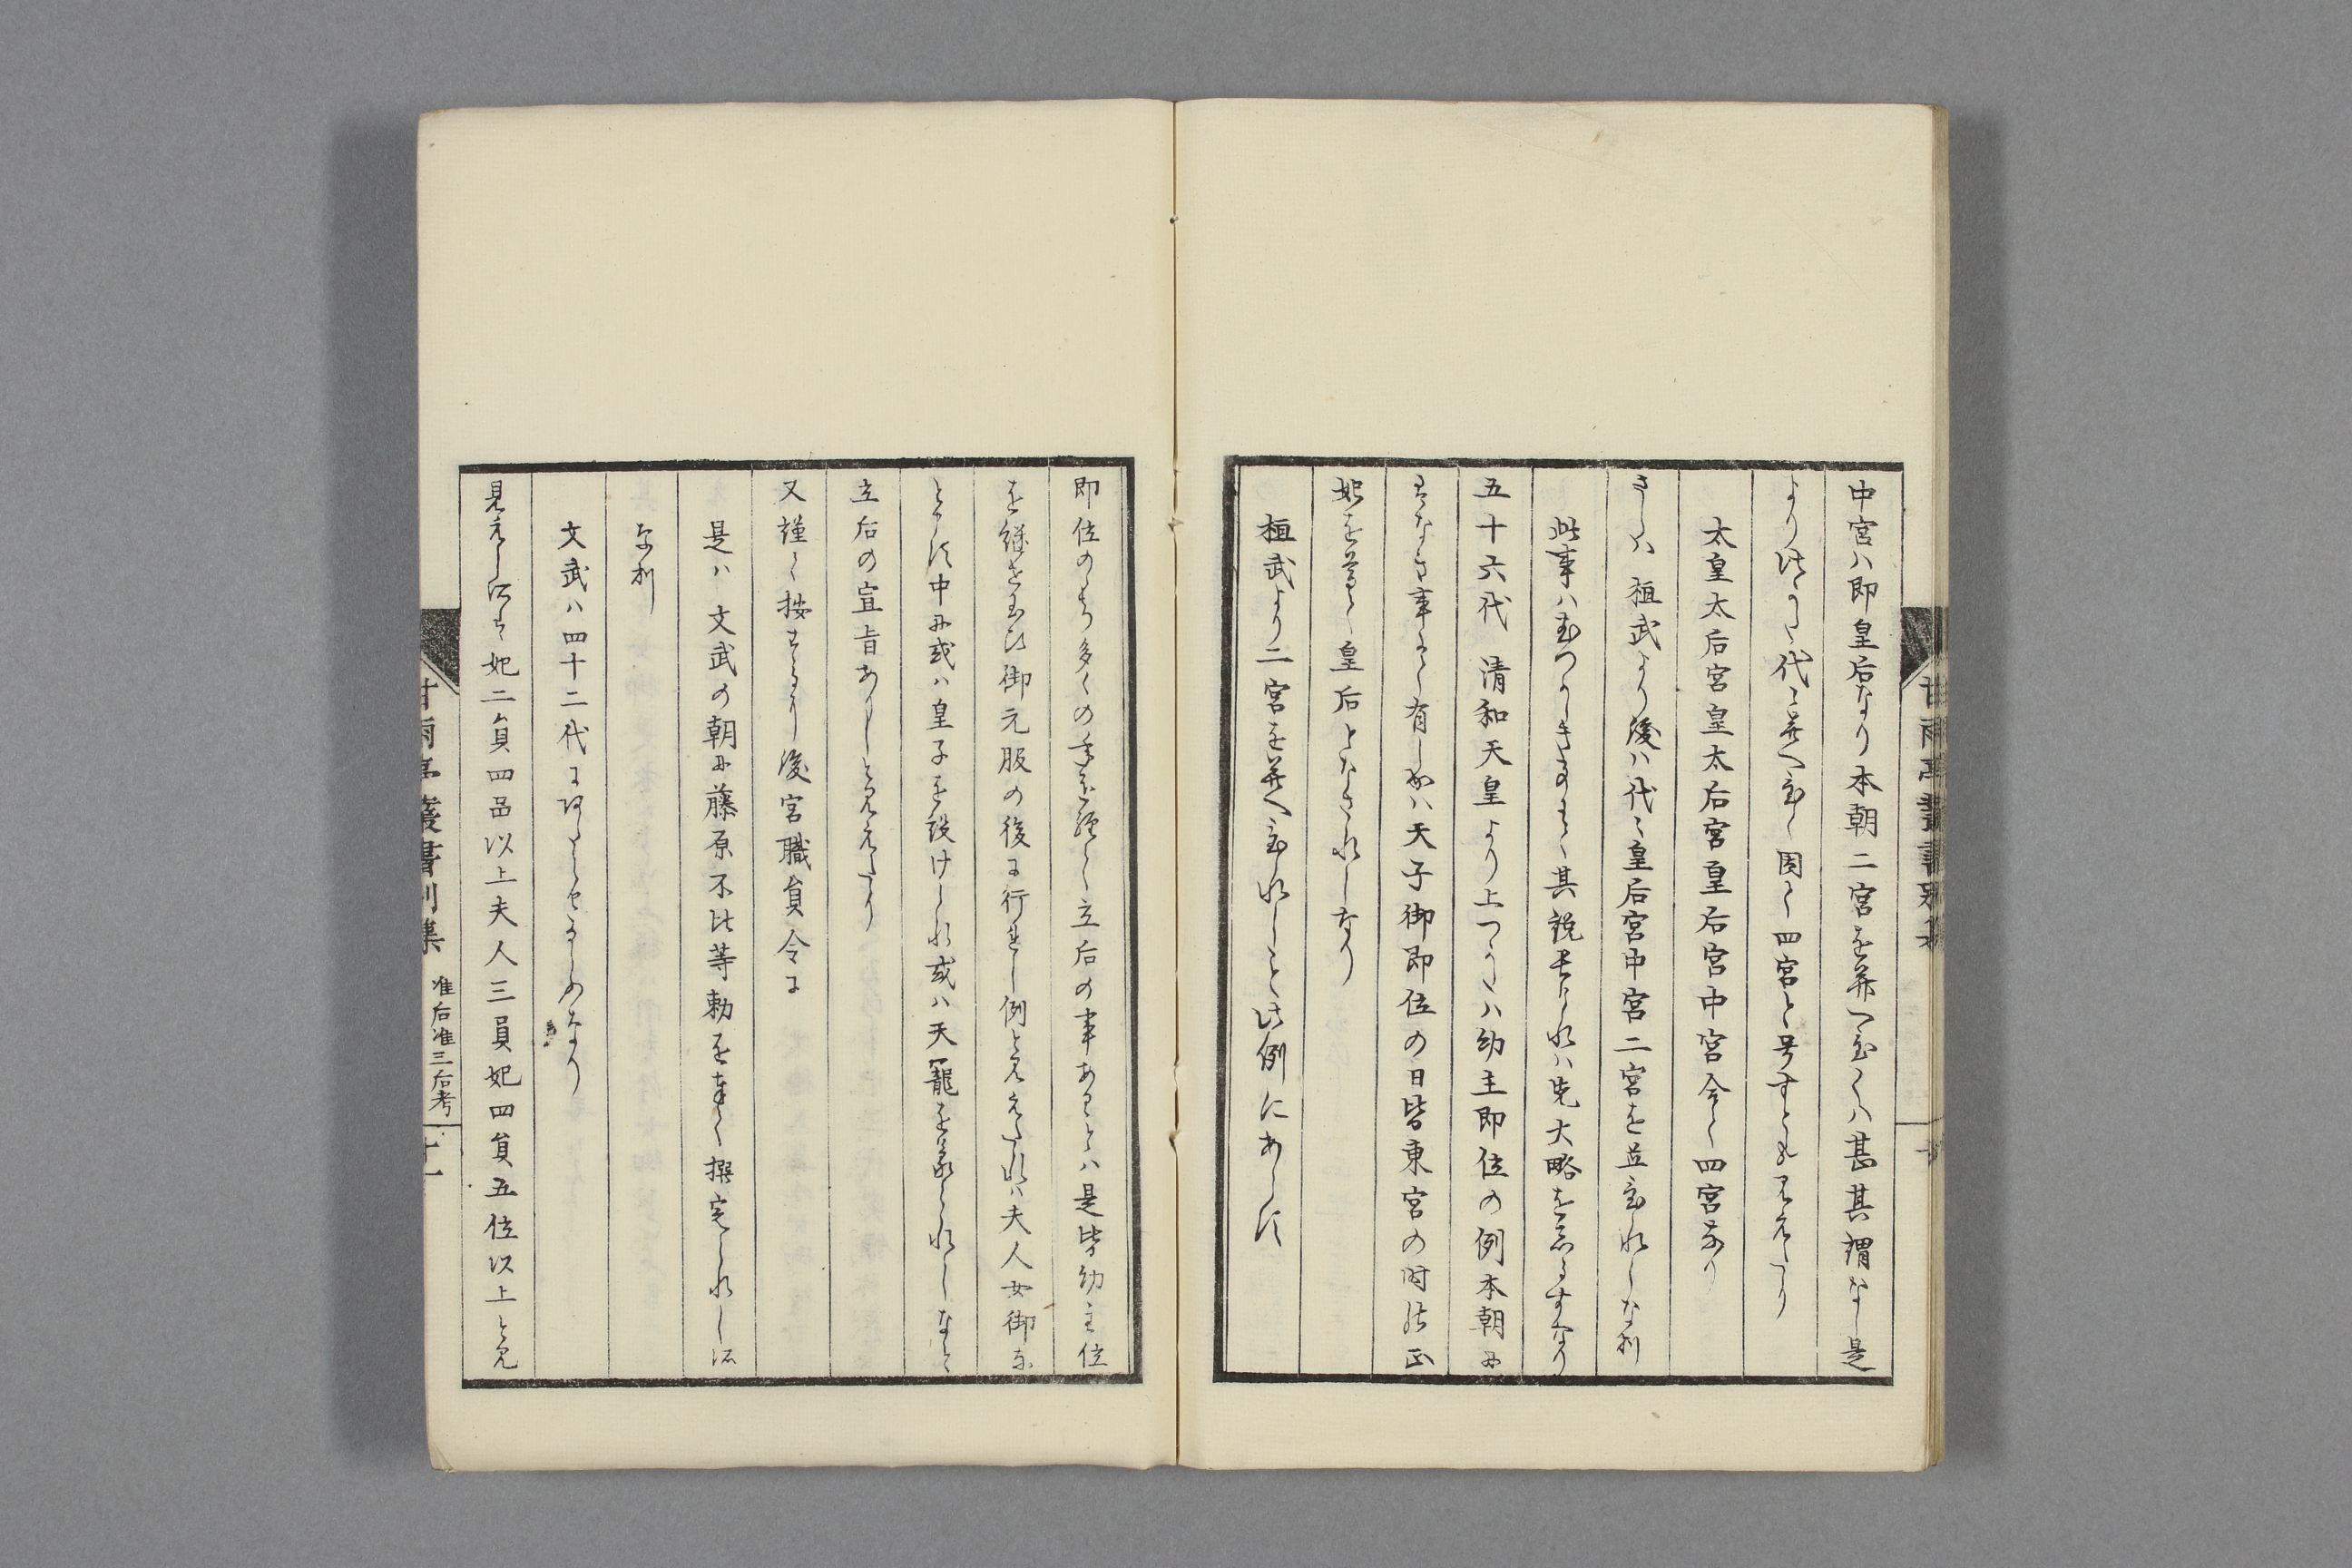 中宮ハ即皇后なり本朝二宮を并へ立らるハ甚其謂なし是
より後つかた代々并へ立て因て四宮と号すとも見えたり
太皇太后宮皇太后宮皇后宮中宮合て四宮なり
さらハ 桓武より後ハ代々皇后宮中宮二宮を並立られしな利
此事ハむつかしき事にて其説長けれハ先大略をしるすなり
五十六代 清和天皇より上つかたハ幼主即位の例本朝に
まさなき事にて有しかハ天子御即位の日皆東宮の時の正
妃を尊て皇后となされしなり
桓武より二宮を并へ立られしこと此例にあらす
即位のゝち多くの年を経て立后の事あることハ是皆幼主位
を継せ玉ひ御元服の後に行はれし例と見えたれハ夫人女御な
とゝす中に或ハ皇子を設けられ或ハ天寵を蒙られしなと
立后の宣旨ありしと見えたり
又謹て按するに後宮職員令に
是ハ 文武の朝に藤原不比等勅を奉て撰定られし所
な利
文武ハ四十二代にあたらせ玉ふなり
見えし所は妃二員四品以上夫人三員妃四員五位以上と見
甘雨亭叢書別集
准后准三后考
十一